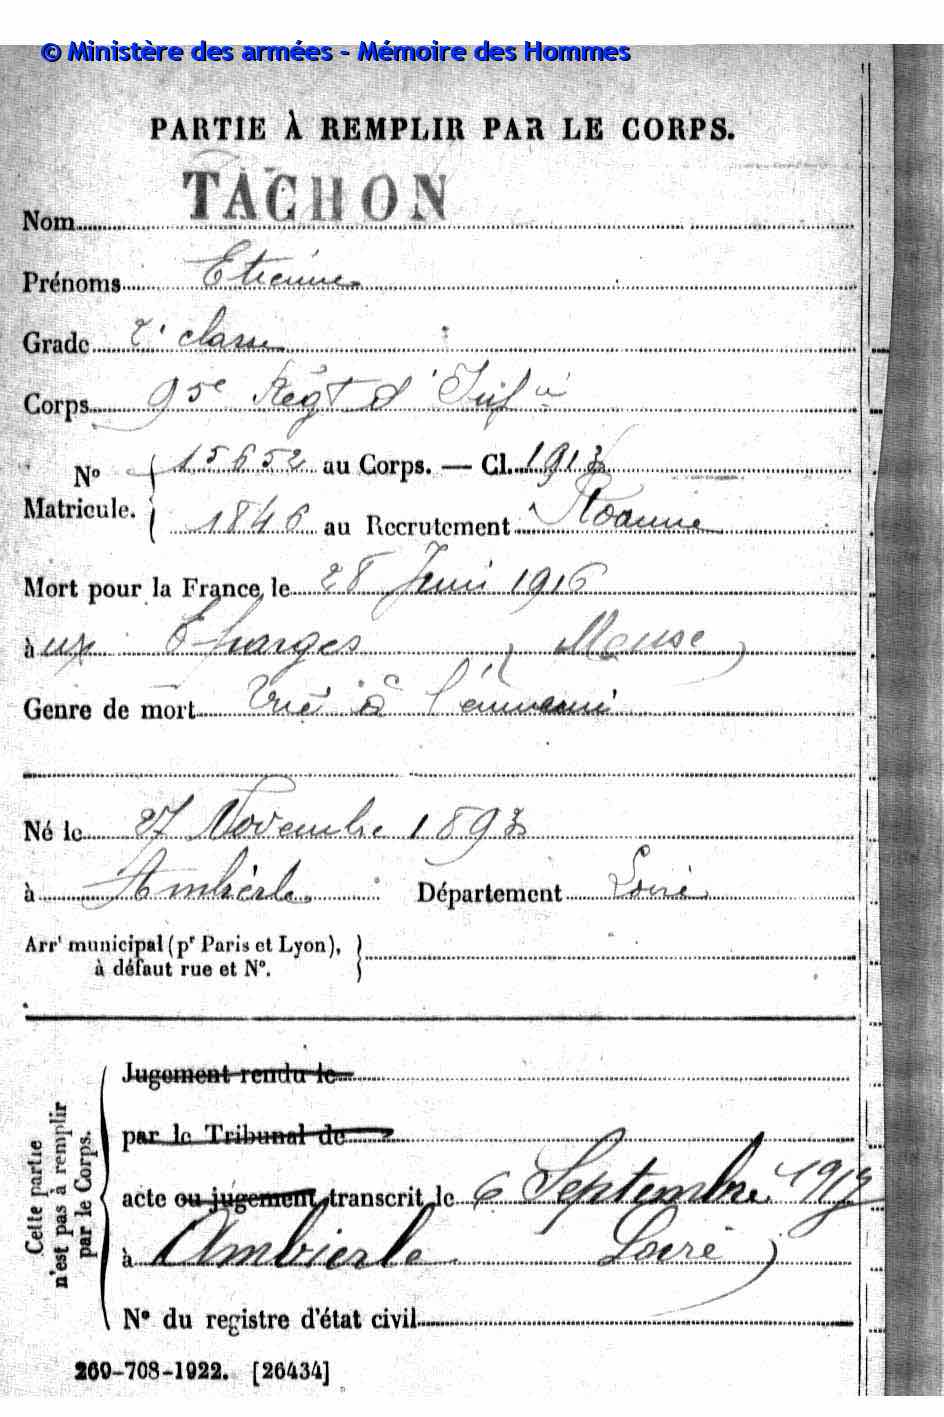 © Ministère des armées - Mémoire des Hommes
PARTIE À REMPLIR PAR LE CORPS.
Nom TACHON
Prénoms Etienne
Grade 2e classe
Corps 95e Régt d'Infie
No Matricule. 15652 au Corps. — Cl. 1913
1846 au Recrutement Roanne
Mort pour la France le 28 Juin 1916
à ux Eparges (Meuse)
Genre de mort Tué à l'ennemi
Né le 27 Novembre 1893
à Ambierle Département Loire
Arrt municipal (pr Paris et Lyon),
à défaut rue et No.
Cette partie
n'est pas à remplir
par le Corps.
Jugement rendu le
par le Tribunal de
acte ou jugement transcrit le 6 Septembre
à Ambierle Loire
No du registre d'état civil
269-708-1922. [26434]